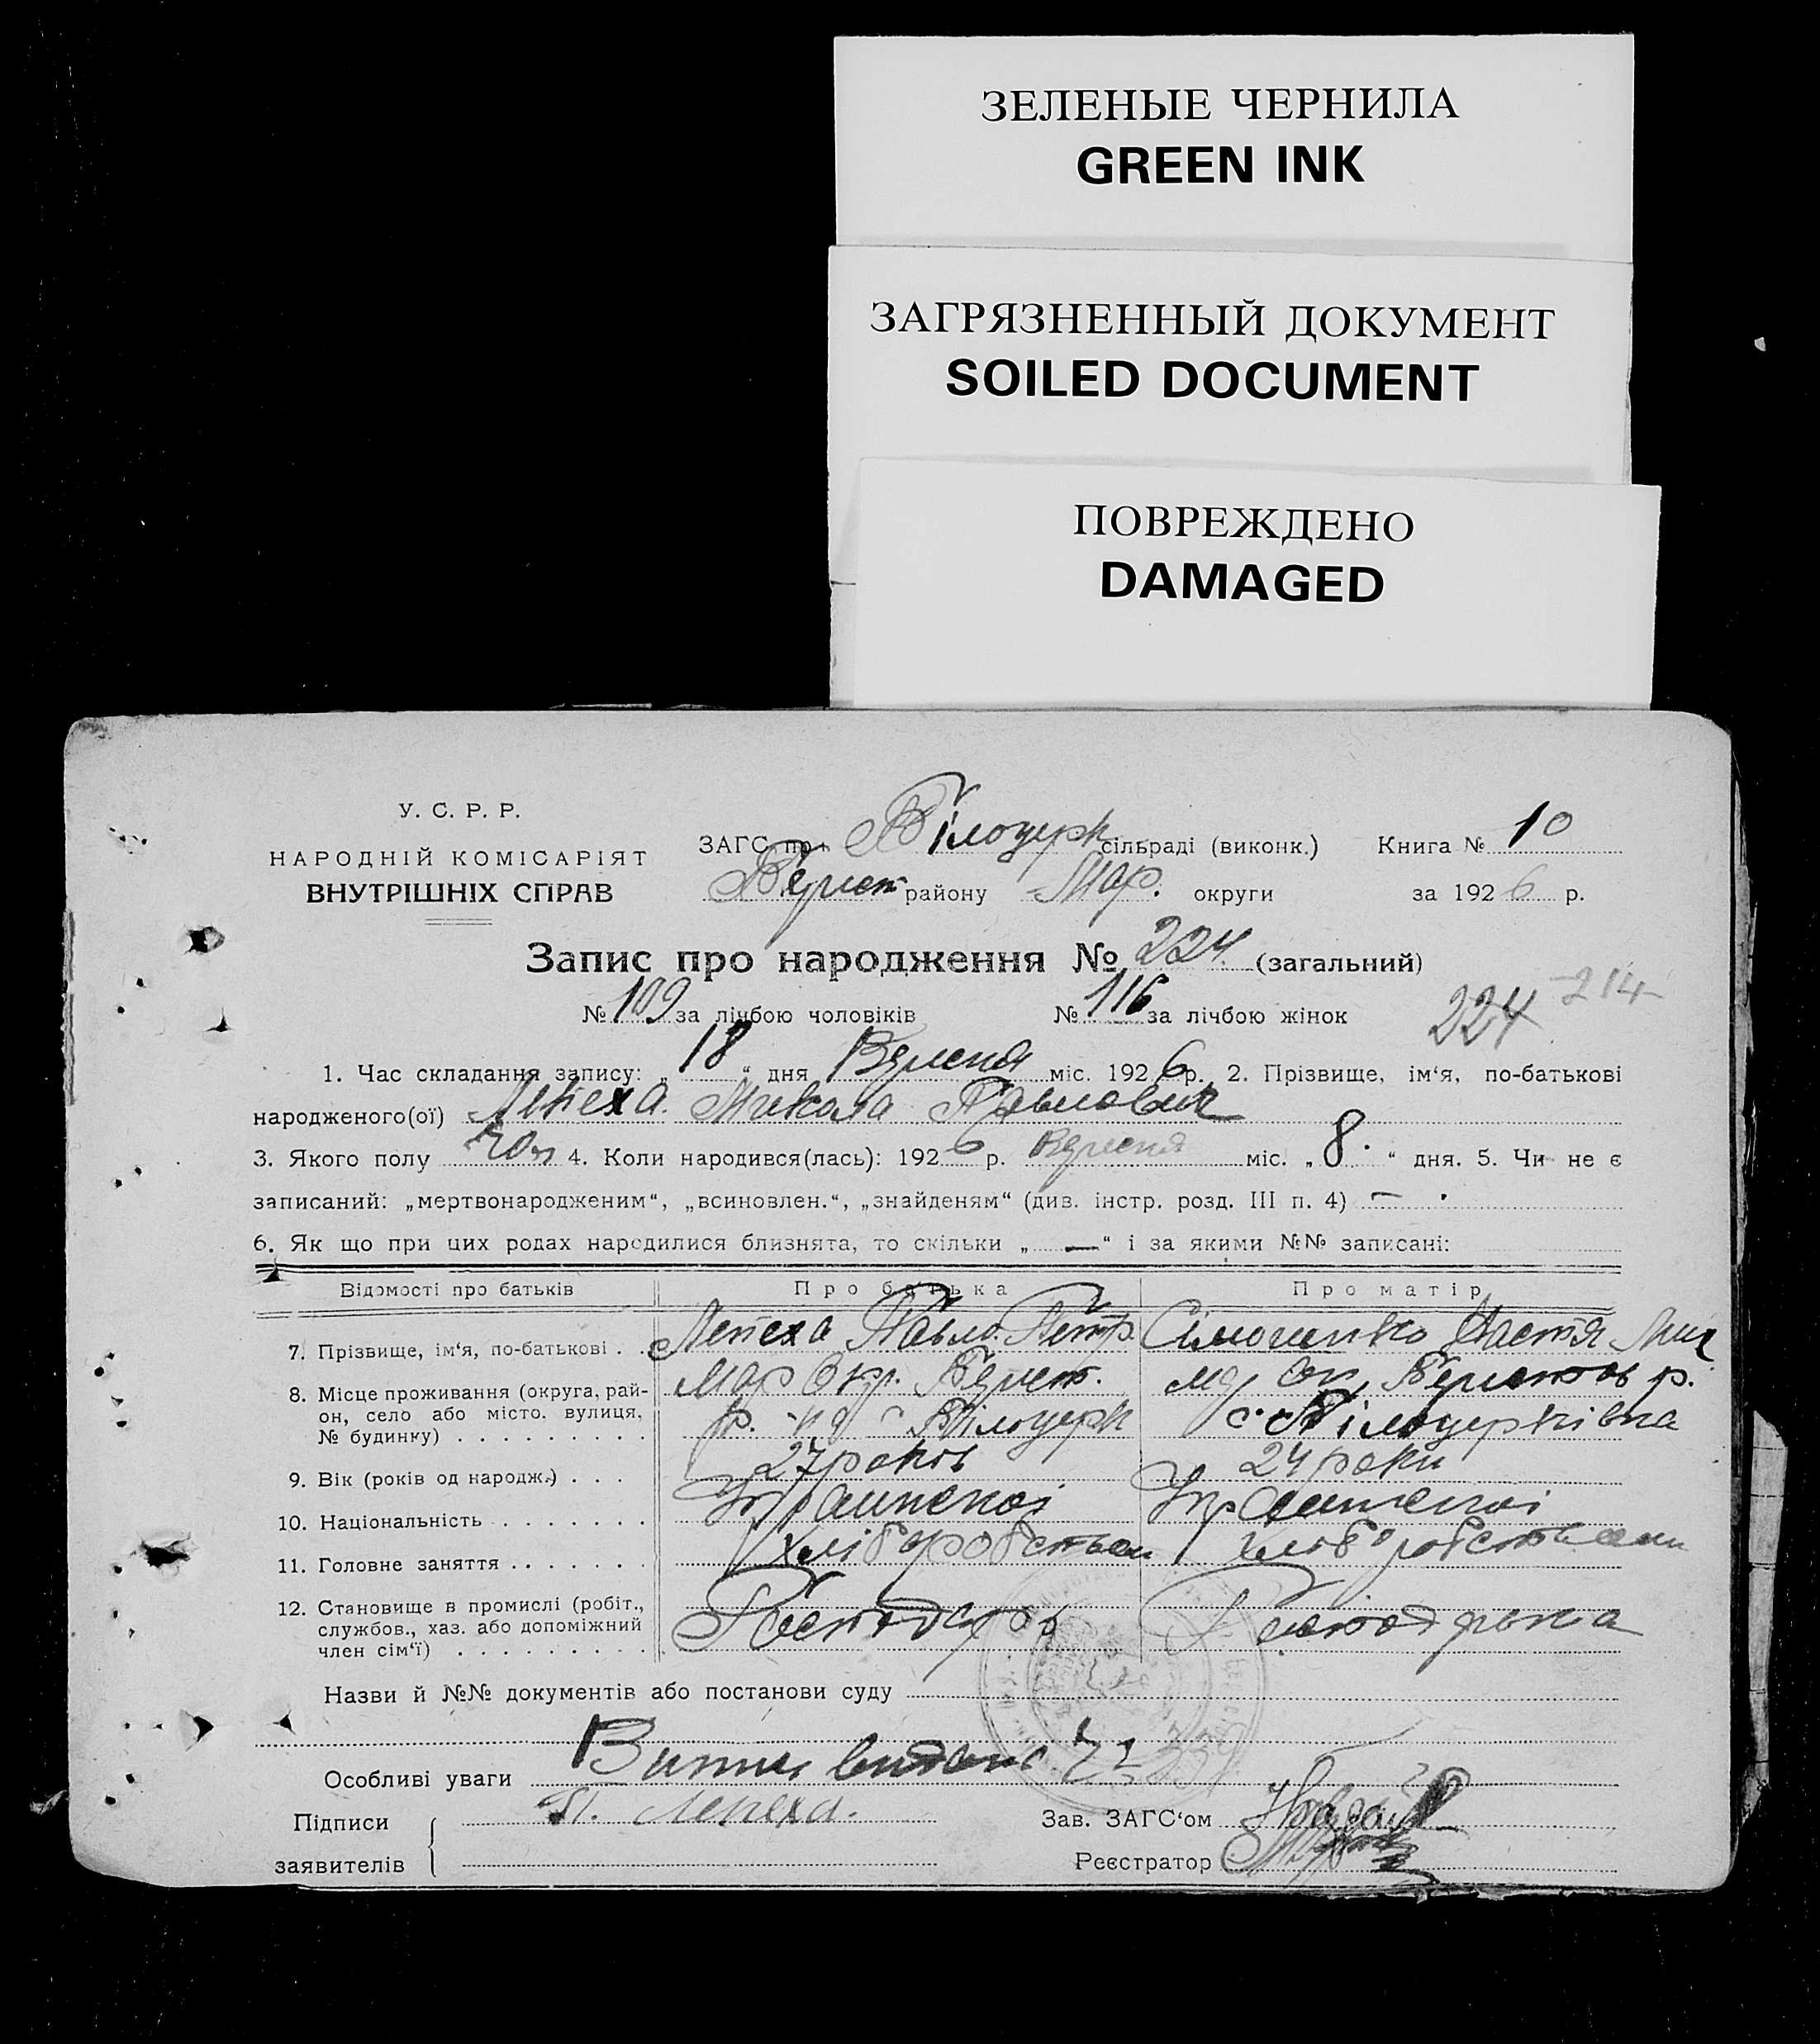 ЗЕЛЕНЫЕ ЧЕРНИЛА
GREEN INK
ЗАГРЯЗНЕННЫЙ ДОКУМЕНТ
SOILED DOCUMENT
ПОВРЕЖДЕНО
DAMAGED
У. С. Р. Р.
НАРОДНІЙ КОМІСАРІЯТ
ВНУТРІШНІХ СПРАВ
ЗАГС при Білоцерк сільраді (виконк.) Книга № 10
району Мар. округи за 1926 р.
Запис про народження № 224 (загальний)
№ 109 за лічбою чоловіків № 116 за лічбою жінок 224 214
1. Час складання запису: „18“ дня Вересня міс. 1926 р. 2. Прізвище, ім‘я, по-батькові
народженого(ої) Лепеха Микола Павлович
3. Якого полу чол 4. Коли народився(лась): 1926 р. Вересня міс. „8“ дня. 5. Чи не є
записаний: „мертвонародженим“, „всиновлен.“, „знайденям“ (див. інстр. розд. III п. 4) —
6. Як що при цих родах народилися близнята, то скільки „—“ і за якими №№ записані:
Відомості про батьків Про батька Про матір
7. Прізвище, ім‘я, по-батькові . . Лепеха Павло Петр. Сімоненко Настя Мих
8. Місце проживання (округа, рай-
он, село або місто, вулиця,
№ будинку) . . . . . . . . .
Мар Окр. р.
Білоцерк с. Білоцерківка
9. Вік (років од народж.) . . . 27 років 24 роки
10. Національність . . . . . . . Української Української
11. Головне заняття . . . . . . хліборобством хліборобством
12. Становище в промислі (робіт.,
службов., хаз. або допоміжний
член сім‘ї) . . . . . . . . .
Господарь Господарька
Назви й №№ документів або постанови суду
Особливі уваги Випис видано № 339
Підписи П. Лепеха. Зав. ЗАГС‘ом
заявителів Реєстратор